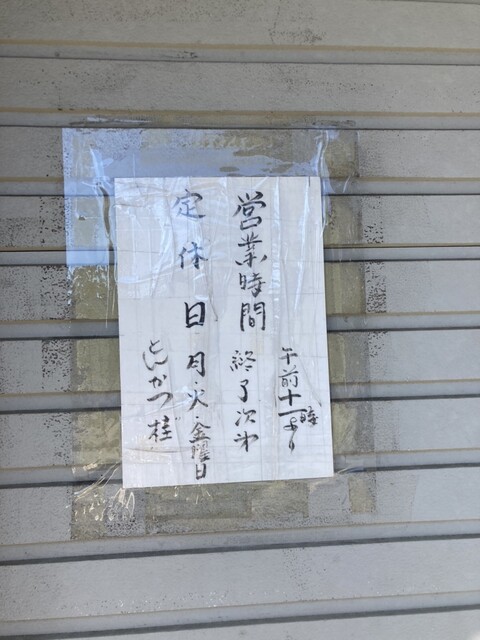 午前十一時より
営業時間 終了次第
定休日 月・火・金曜日
とんかつ桂